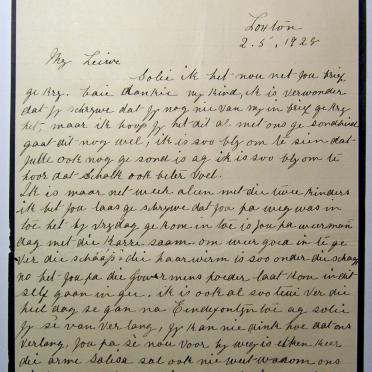 Loxton
2.5, 1928
My Leiwe
Solie ik het nou net jou brief
ge kry. baie dankie my kind, ik is verwonder
dat jy schrywe dat jy nog nie van my in brief ge kry
het, maar ik hoop jy het dit al met ons ge sondheid
gaat dit nog wel, ik is soo bly om te sien dat
julle ook nog ge sond is ag ik is soo bly om te
hoor dat Schalk ook beter voel.
Ik is maar net weer aleen met die twee kinders
ik het jou laas ge schrywe dat jou pa weg was in
toe het hy Vrydag ge kom in toe is jou pa weer
dag met die karre saam om weer goed in te ge
ver die schaap die haar wirm is soo onder die schaap
no het jou pa die poeder laat kom in dit
self gaan in gee. ik is ook al soo ver die
heel dag se gan na toe ag solie
jy sê van ver lang, jy kan nie dink hoe dat ons
verlang, jou pa sê nou voor hy weg is elken keer
die arme sal ook nie wat ons